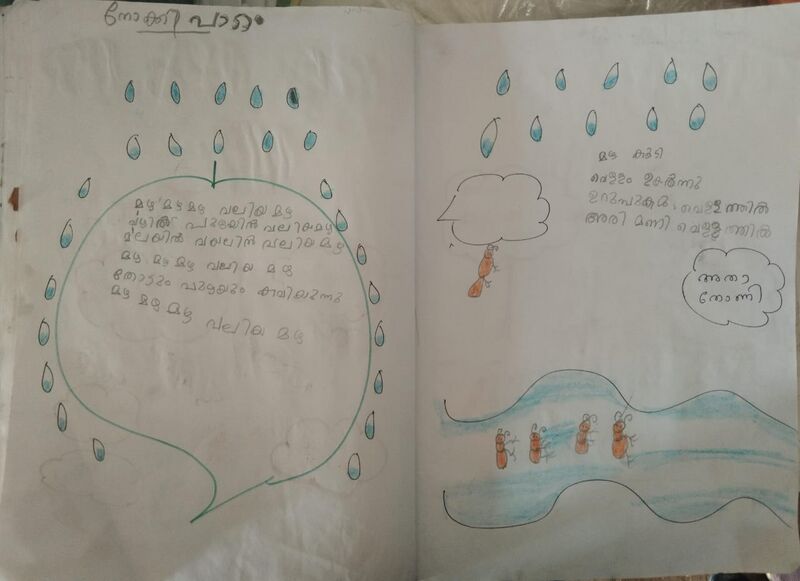 നോക്കി പാടാം
മഴ മഴ മഴ വലിയ മഴ
പുഴയിൽ വലിയ മഴ
മലയിൻ വയലിൻ വലിയ മഴ
മഴ മഴ മഴ വലിയ മഴ
തോടും പുഴയും കവിയുന്നു
മഴ മഴ മഴ വലിയ മഴ
മഴ കൂടി
വെള്ളം ഉയർന്നു
ഉറുമ്പുകൾ വെള്ളത്തിൽ
അരി മണി വെള്ളത്തിൽ
അതാ
തോണി